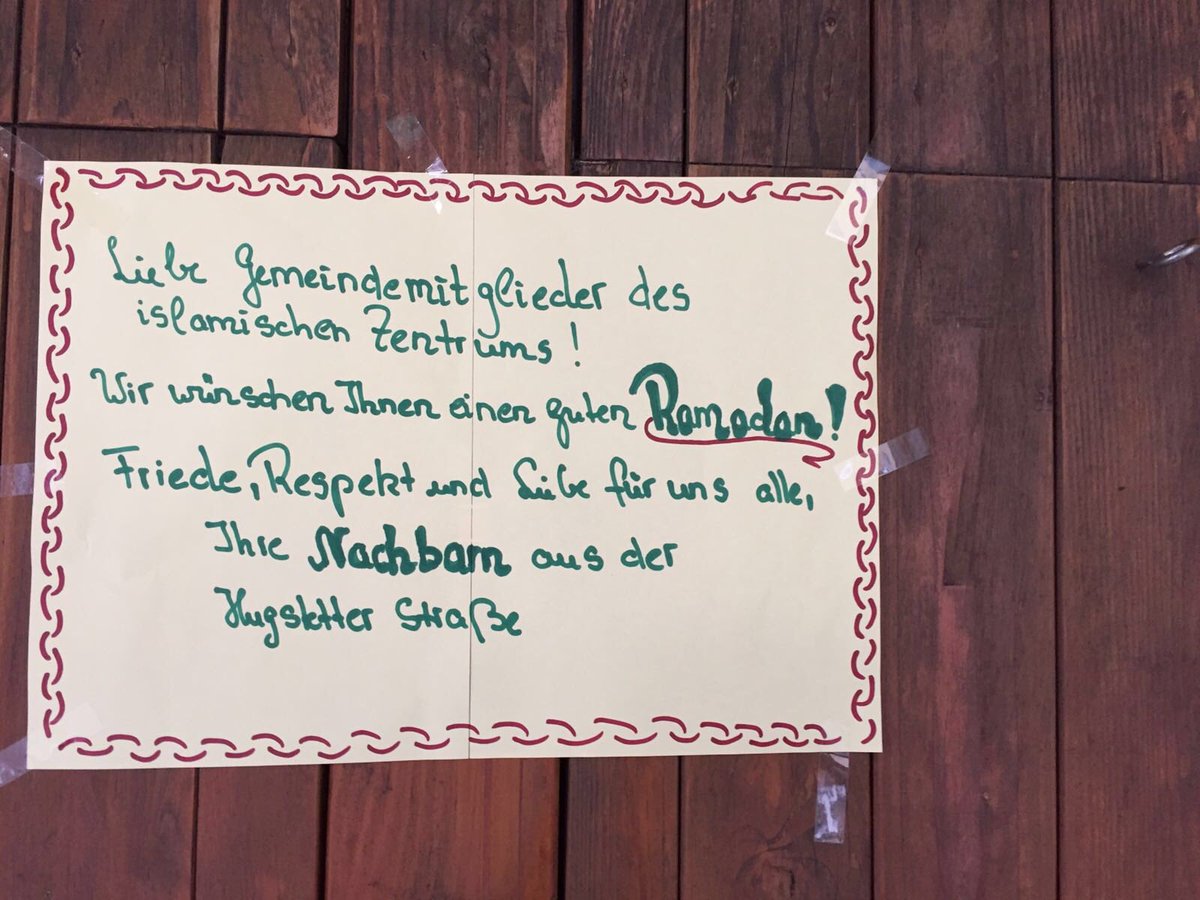 Liebe Gemeindemitglieder des
islamischen Zentrums!
Wir wünschen Ihnen einen guten Ramadan!
Friede, Respekt und Liebe für uns alle,
Ihre Nachbarn aus der
Hugstetter Straße